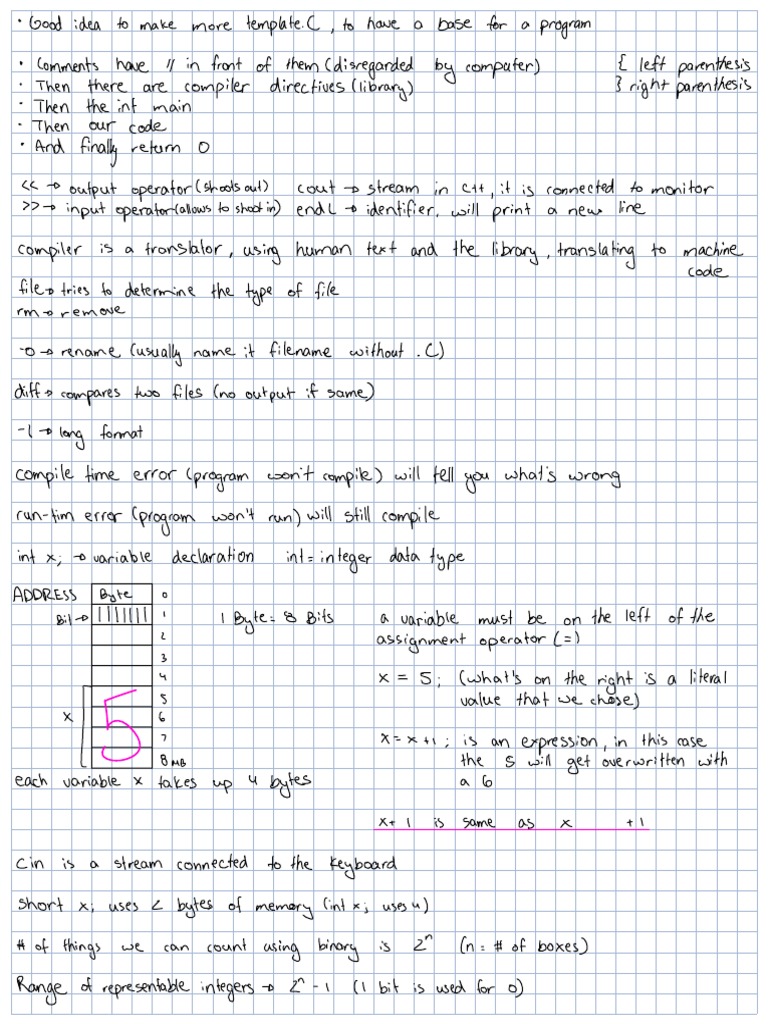 • Good idea to make more template.C, to have a base for a program
• Comments have // in front of them (disregarded by computer)
{ left parenthesis
• Then there are compiler directives (library)
} right parenthesis
• Then the int main
• Then our code
• And finally return 0
<< → output operator (shoots out)
cout → stream in C++, it is connected to monitor
>> → input operator (allows to shoot in)
endl → identifier, will print a new line
compiler is a translator, using human text and the library, translating to machine
code
file → tries to determine the type of file
rm → remove
-o → rename (usually name it filename without .C)
diff → compares two files (no output if same)
-l → long format
compile time error (program won't compile) will tell you what's wrong
run-tim error (program won't run) will still compile
int x; → variable declaration int = integer data type
ADDRESS
Byte
0
Bit →
1
2
3
4
5
6
7
8 MB
x
5
1 Byte = 8 Bits
each variable x takes up 4 bytes
a variable must be on the left of the
assignment operator (=)
x = 5; (what's on the right is a literal
value that we chose)
x = x+1; is an expression, in this case
the 5 will get overwritten with
a 6
x+1 is same as x +1
Cin is a stream connected to the keyboard
short x; uses 2 bytes of memory (int x; uses 4)
# of things we can count using binary is 2ⁿ (n = # of boxes)
Range of representable integers → 2ⁿ - 1 (1 bit is used for 0)